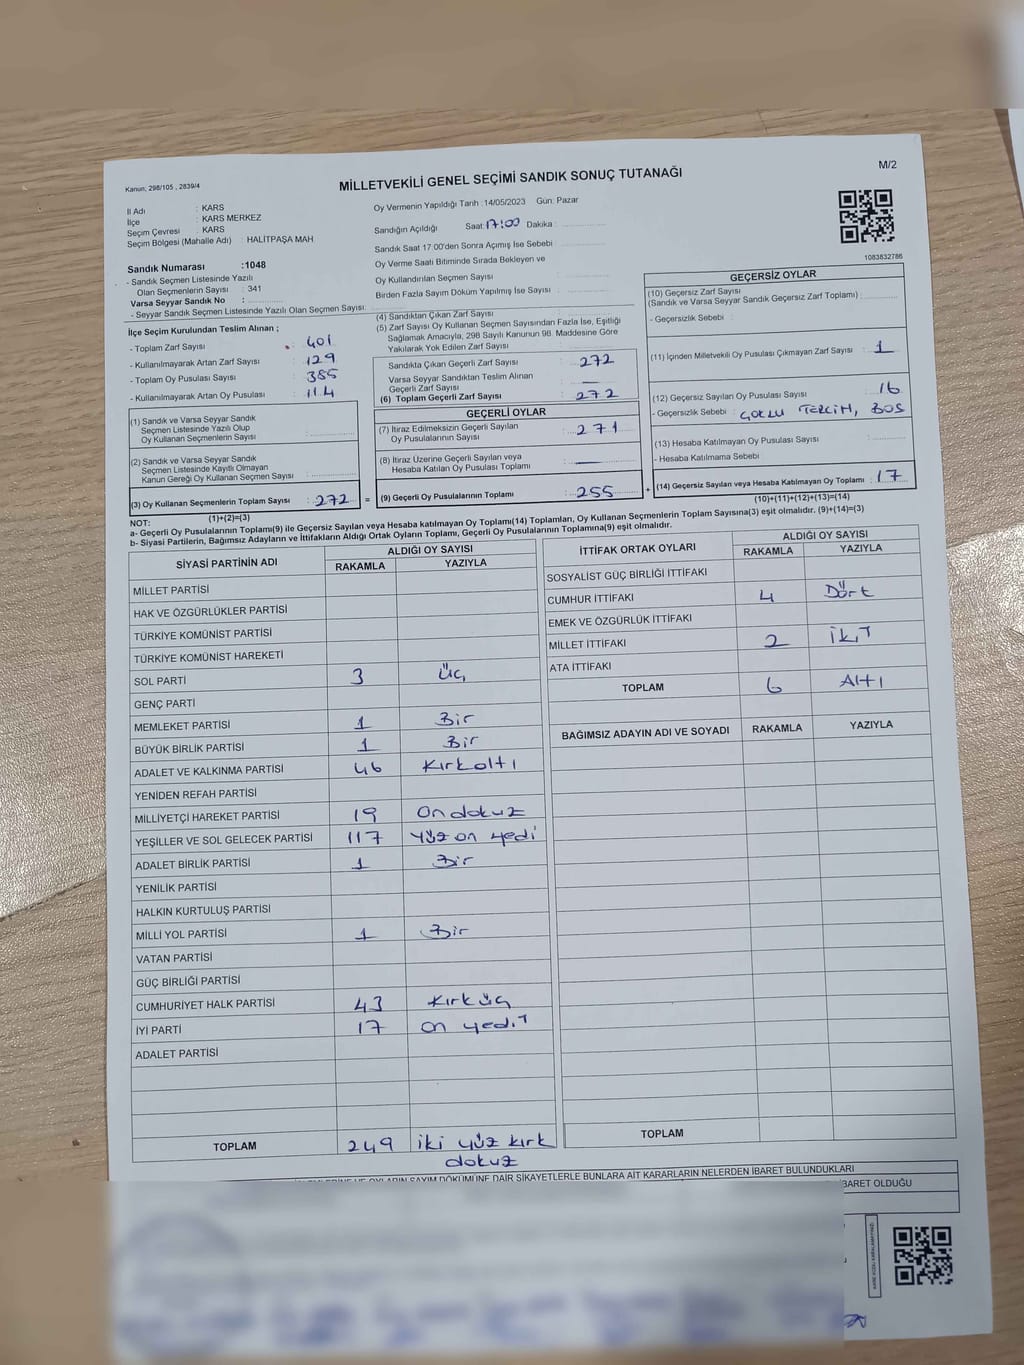 M/2
Kanun, 298/105 , 2839/4
MİLLETVEKİLİ GENEL SEÇİMİ SANDIK SONUÇ TUTANAĞI
İl Adı : KARS
İlçe : KARS MERKEZ
Seçim Çevresi : KARS
Seçim Bölgesi (Mahalle Adı) : HALİTPAŞA MAH
Sandık Numarası :1048
- Sandık Seçmen Listesinde Yazılı
Olan Seçmenlerin Sayısı : 341
Varsa Seyyar Sandık No :
- Seyyar Sandık Seçmen Listesinde Yazılı Olan Seçmen Sayısı:
Oy Vermenin Yapıldığı Tarih :14/05/2023 Gün: Pazar
Sandığın Açıldığı Saat: 17:00 Dakika :
Sandık Saat 17:00'den Sonra Açımış İse Sebebi :
Oy Verme Saati Bitiminde Sırada Bekleyen ve
Oy Kullandırılan Seçmen Sayısı :
Birden Fazla Sayım Döküm Yapılmış İse Sayısı :
1083832786
İlçe Seçim Kurulundan Teslim Alınan ;
- Toplam Zarf Sayısı : 401
- Kullanılmayarak Artan Zarf Sayısı : 129
- Toplam Oy Pusulası Sayısı : 385
- Kullanılmayarak Artan Oy Pusulası : 114
(1) Sandık ve Varsa Seyyar Sandık
Seçmen Listesinde Yazılı Olup
Oy Kullanan Seçmenlerin Sayısı :
(2) Sandık ve Varsa Seyyar Sandık
Seçmen Listesinde Kayıtlı Olmayan
Kanun Gereği Oy Kullanan Seçmen Sayısı :
(3) Oy Kullanan Seçmenlerin Toplam Sayısı : 272 =
(1)+(2)=(3)
(4) Sandıktan Çıkan Zarf Sayısı :
(5) Zarf Sayısı Oy Kullanan Seçmen Sayısından Fazla İse, Eşitliği
Sağlamak Amacıyla, 298 Sayılı Kanunun 98. Maddesine Göre
Yakılarak Yok Edilen Zarf Sayısı :
Sandıkta Çıkan Geçerli Zarf Sayısı : 272
Varsa Seyyar Sandıktan Teslim Alınan
Geçerli Zarf Sayısı : —
(6) Toplam Geçerli Zarf Sayısı : 272
GEÇERLİ OYLAR
(7) İtiraz Edilmeksizin Geçerli Sayılan
Oy Pusulalarının Sayısı : 271
(8) İtiraz Üzerine Geçerli Sayılan veya
Hesaba Katılan Oy Pusulası Toplamı : —
(9) Geçerli Oy Pusulalarının Toplamı : 255 +
GEÇERSİZ OYLAR
(10) Geçersiz Zarf Sayısı
(Sandık ve Varsa Seyyar Sandık Geçersiz Zarf Toplamı) :
- Geçersizlik Sebebi :
(11) İçinden Milletvekili Oy Pusulası Çıkmayan Zarf Sayısı : 1
(12) Geçersiz Sayılan Oy Pusulası Sayısı : 16
- Geçersizlik Sebebi : ÇOKLU TERCİH, BOŞ
(13) Hesaba Katılmayan Oy Pusulası Sayısı :
- Hesaba Katılmama Sebebi
(14) Geçersiz Sayılan veya Hesaba Katılmayan Oy Toplamı : 17
(10)+(11)+(12)+(13)=(14)
NOT:
a- Geçerli Oy Pusulalarının Toplamı(9) ile Geçersiz Sayılan veya Hesaba katılmayan Oy Toplamı(14) Toplamları, Oy Kullanan Seçmenlerin Toplam Sayısına(3) eşit olmalıdır. (9)+(14)=(3)
b- Siyasi Partilerin, Bağımsız Adayların ve İttifakların Aldığı Ortak Oyların Toplamı, Geçerli Oy Pusulalarının Toplamına(9) eşit olmalıdır.
SİYASİ PARTİNİN ADI ALDIĞI OY SAYISI
RAKAMLA YAZIYLA
MİLLET PARTİSİ
HAK VE ÖZGÜRLÜKLER PARTİSİ
TÜRKİYE KOMÜNİST PARTİSİ
TÜRKİYE KOMÜNİST HAREKETİ
SOL PARTİ 3 Üç
GENÇ PARTİ
MEMLEKET PARTİSİ 1 Bir
BÜYÜK BİRLİK PARTİSİ 1 Bir
ADALET VE KALKINMA PARTİSİ 46 Kırkaltı
YENİDEN REFAH PARTİSİ
MİLLİYETÇİ HAREKET PARTİSİ 19 On dokuz
YEŞİLLER VE SOL GELECEK PARTİSİ 117 Yüz on yedi
ADALET BİRLİK PARTİSİ 1 Bir
YENİLİK PARTİSİ
HALKIN KURTULUŞ PARTİSİ
MİLLİ YOL PARTİSİ 1 Bir
VATAN PARTİSİ
GÜÇ BİRLİĞİ PARTİSİ
CUMHURİYET HALK PARTİSİ 43 Kırk üç
İYİ PARTİ 17 On yedi
ADALET PARTİSİ
TOPLAM 249 iki yüz kırk
dokuz
İTTİFAK ORTAK OYLARI ALDIĞI OY SAYISI
RAKAMLA YAZIYLA
SOSYALİST GÜÇ BİRLİĞİ İTTİFAKI
CUMHUR İTTİFAKI 4 Dört
EMEK VE ÖZGÜRLÜK İTTİFAKI
MİLLET İTTİFAKI 2 İki
ATA İTTİFAKI
TOPLAM 6 Altı
BAĞIMSIZ ADAYIN ADI VE SOYADI RAKAMLA YAZIYLA
TOPLAM
OYLARIN SAYIM DÖKÜMÜNE DAİR ŞİKAYETLERLE BUNLARA AİT KARARLARIN NELERDEN İBARET BULUNDUKLARI
İBARET OLDUĞU